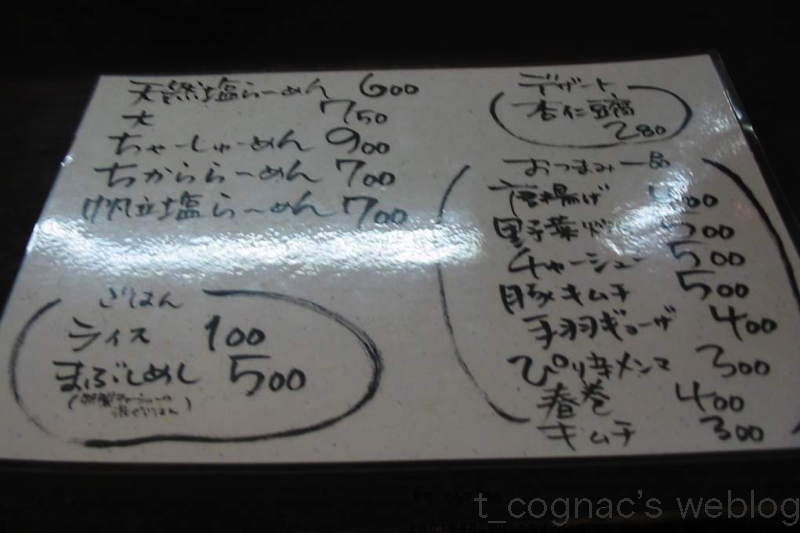 天然塩らーめん 600
大 750
ちゃーしゅーめん 900
ちかららーめん 700
帆立塩らーめん 700
ごはん
ライス 100
まぶしめし 500
デザート
杏仁豆腐
280
おつまみ一品
唐揚げ 500
野菜 500
チャーシュー 500
豚キムチ 500
手羽ギョーザ 400
ぴり辛メンマ 300
春巻 400
キムチ 300
t_cognac's weblog